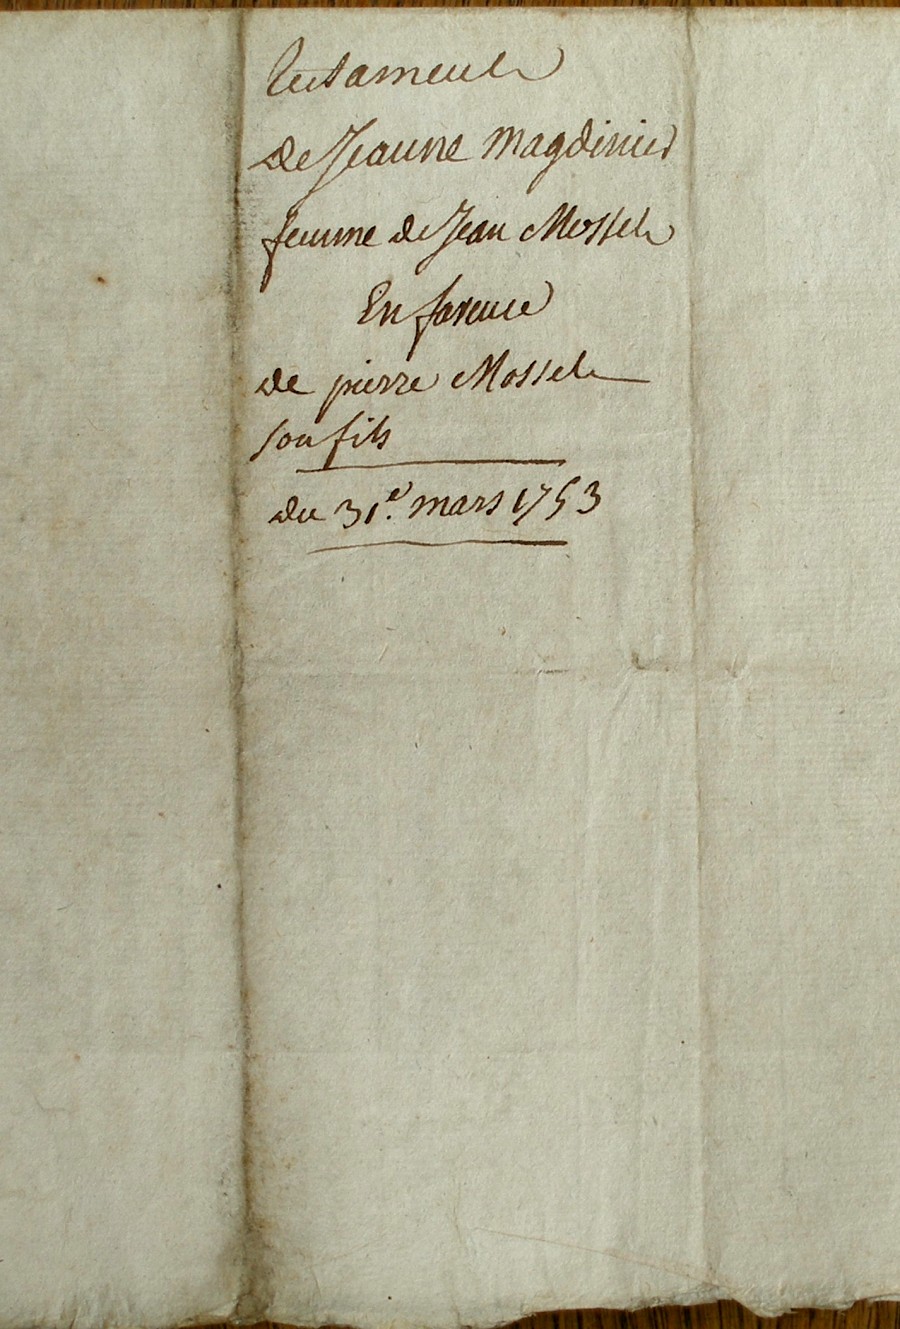 testament
de Jeanne Magdinier
femme de Jean Mossel
En faveur
de pierre Mossel
son fils
du 31e. mars 1753